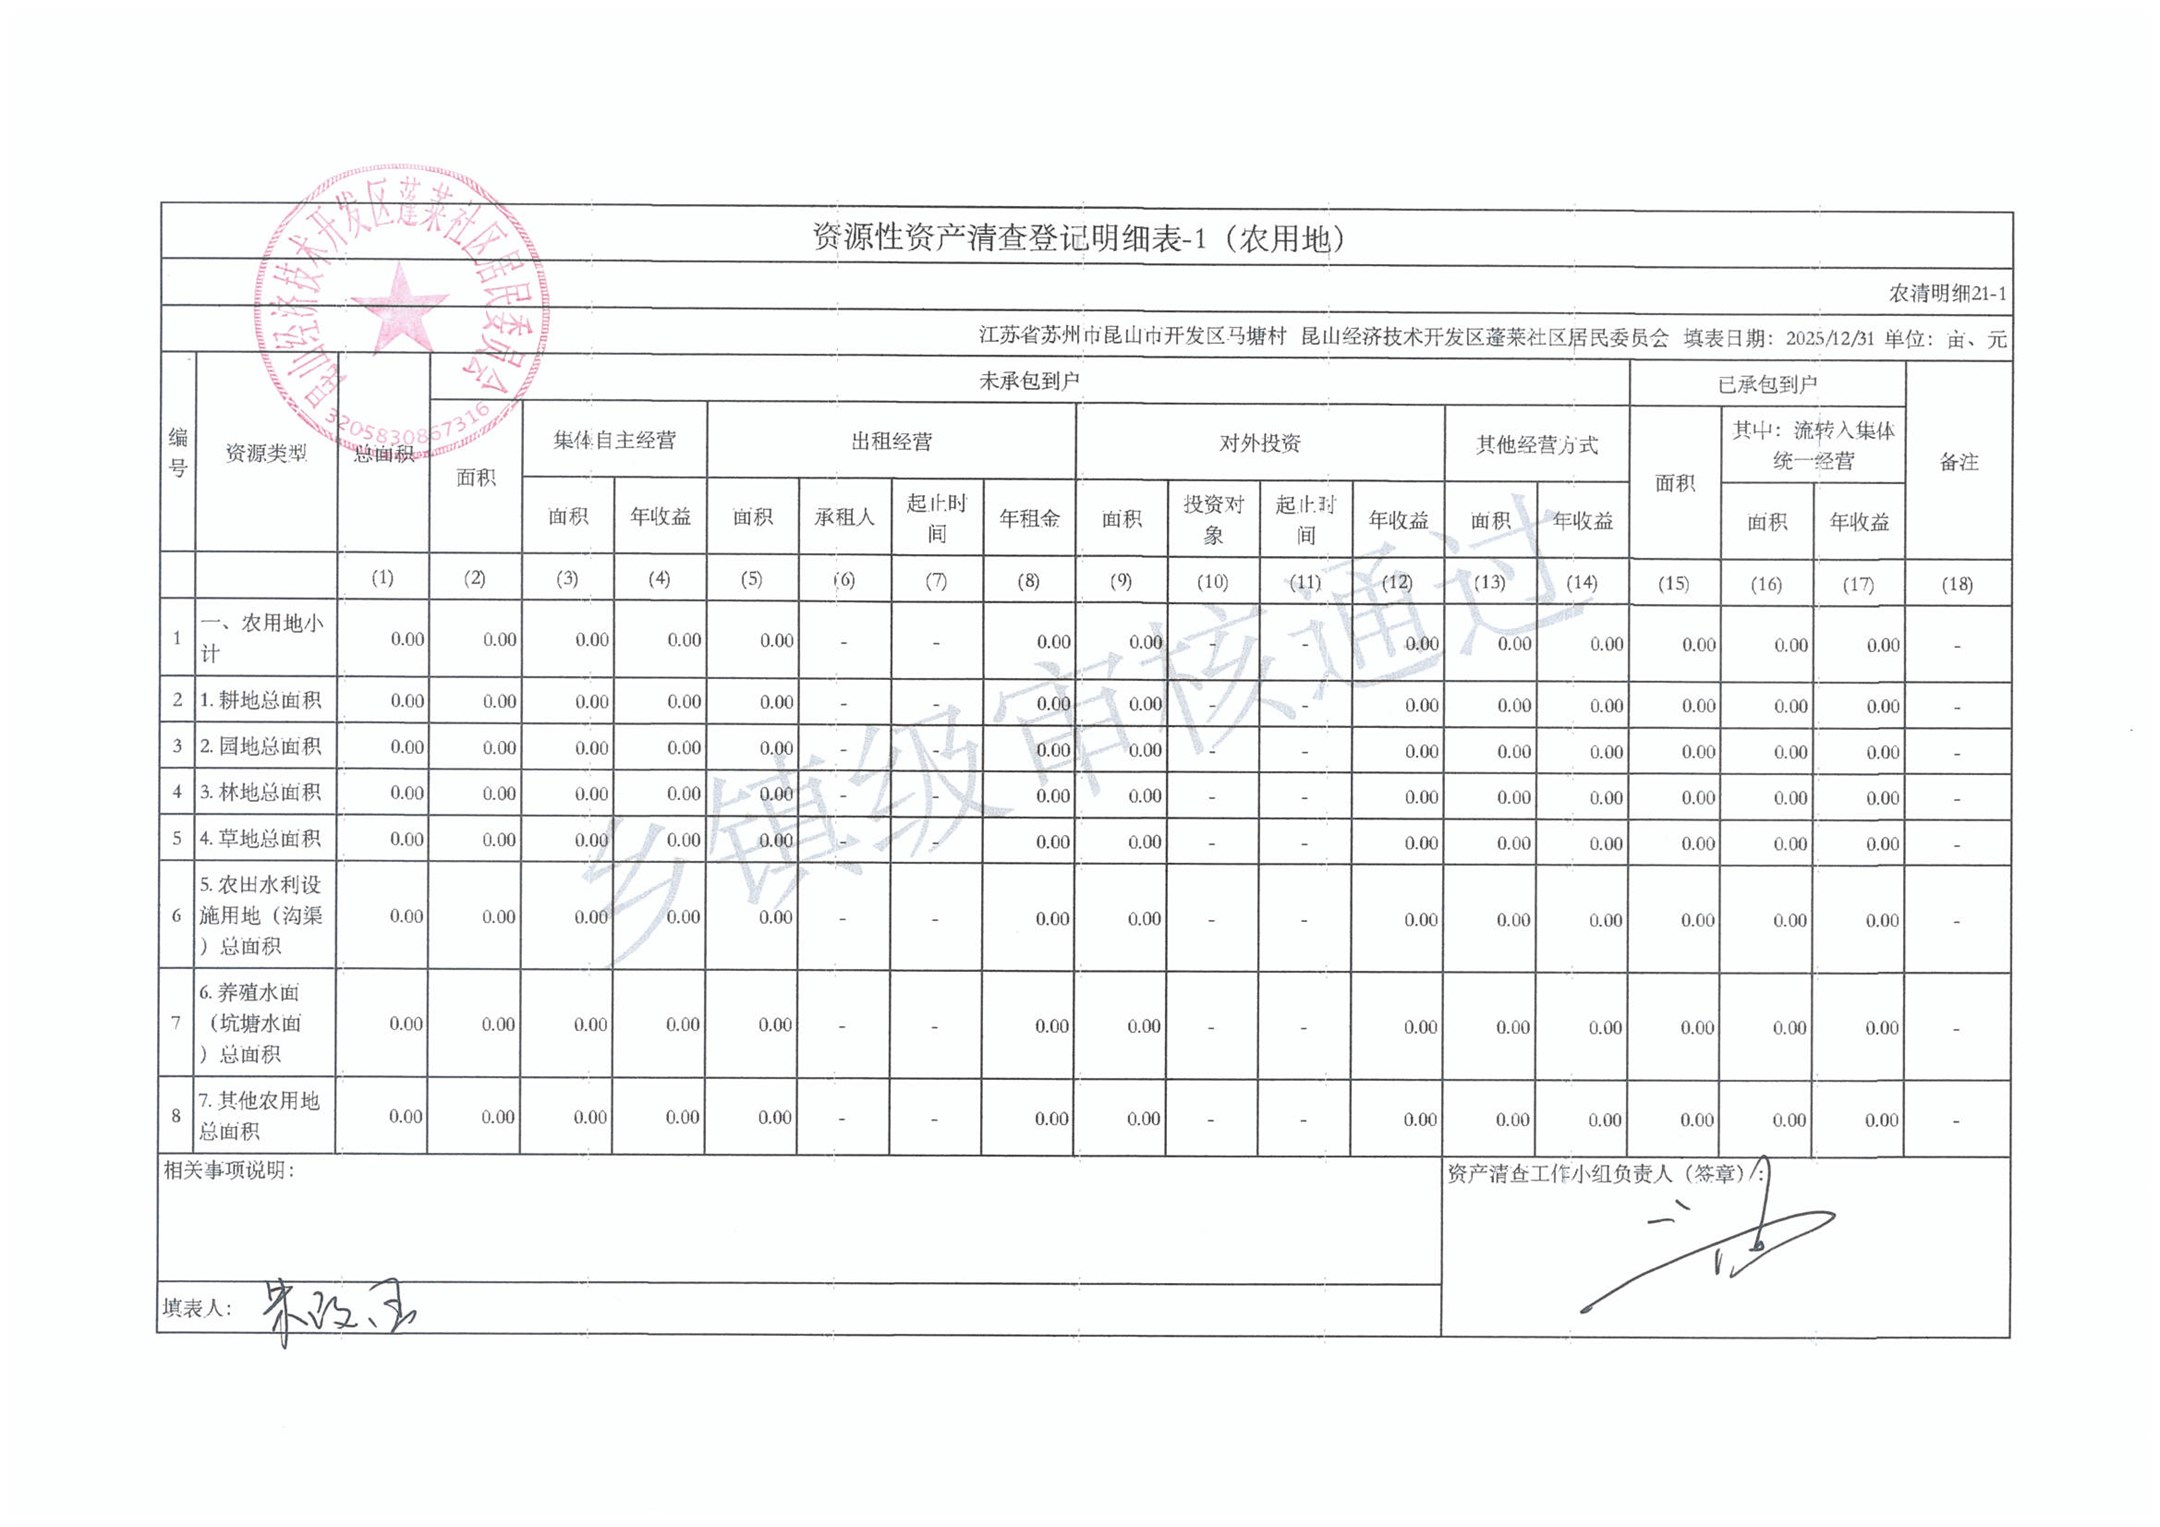 昆山经济技术开发区蓬莱社区居民委员会
资源性资产清查登记明细表-1（农用地）
农清明细21-1
江苏省苏州市昆山市开发区马塘村 昆山经济技术开发区蓬莱社区居民委员会 填表日期：2025/12/31 单位：亩、元
编号 资源类型 总面积 未承包到户 已承包到户 备注
面积 集体自主经营 出租经营 对外投资 其他经营方式 面积 其中：流转入集体统一经营
面积 年收益 面积 承租人 起止时间 年租金 面积 投资对象 起止时间 年收益 面积 年收益 面积 年收益
(1) (2) (3) (4) (5) (6) (7) (8) (9) (10) (11) (12) (13) (14) (15) (16) (17) (18)
1 一、农用地小计 0.00 0.00 0.00 0.00 0.00 - - 0.00 0.00 - - 0.00 0.00 0.00 0.00 0.00 0.00 -
2 1. 耕地总面积 0.00 0.00 0.00 0.00 0.00 - - 0.00 0.00 - - 0.00 0.00 0.00 0.00 0.00 0.00 -
3 2. 园地总面积 0.00 0.00 0.00 0.00 0.00 - - 0.00 0.00 - - 0.00 0.00 0.00 0.00 0.00 0.00 -
4 3. 林地总面积 0.00 0.00 0.00 0.00 0.00 - - 0.00 0.00 - - 0.00 0.00 0.00 0.00 0.00 0.00 -
5 4. 草地总面积 0.00 0.00 0.00 0.00 0.00 - - 0.00 0.00 - - 0.00 0.00 0.00 0.00 0.00 0.00 -
6 5. 农田水利设施用地（沟渠）总面积 0.00 0.00 0.00 0.00 0.00 - - 0.00 0.00 - - 0.00 0.00 0.00 0.00 0.00 0.00 -
7 6. 养殖水面（坑塘水面）总面积 0.00 0.00 0.00 0.00 0.00 - - 0.00 0.00 - - 0.00 0.00 0.00 0.00 0.00 0.00 -
8 7. 其他农用地总面积 0.00 0.00 0.00 0.00 0.00 - - 0.00 0.00 - - 0.00 0.00 0.00 0.00 0.00 0.00 -
乡镇级审核通过
相关事项说明：
资产清查工作小组负责人（签章）：
填表人：